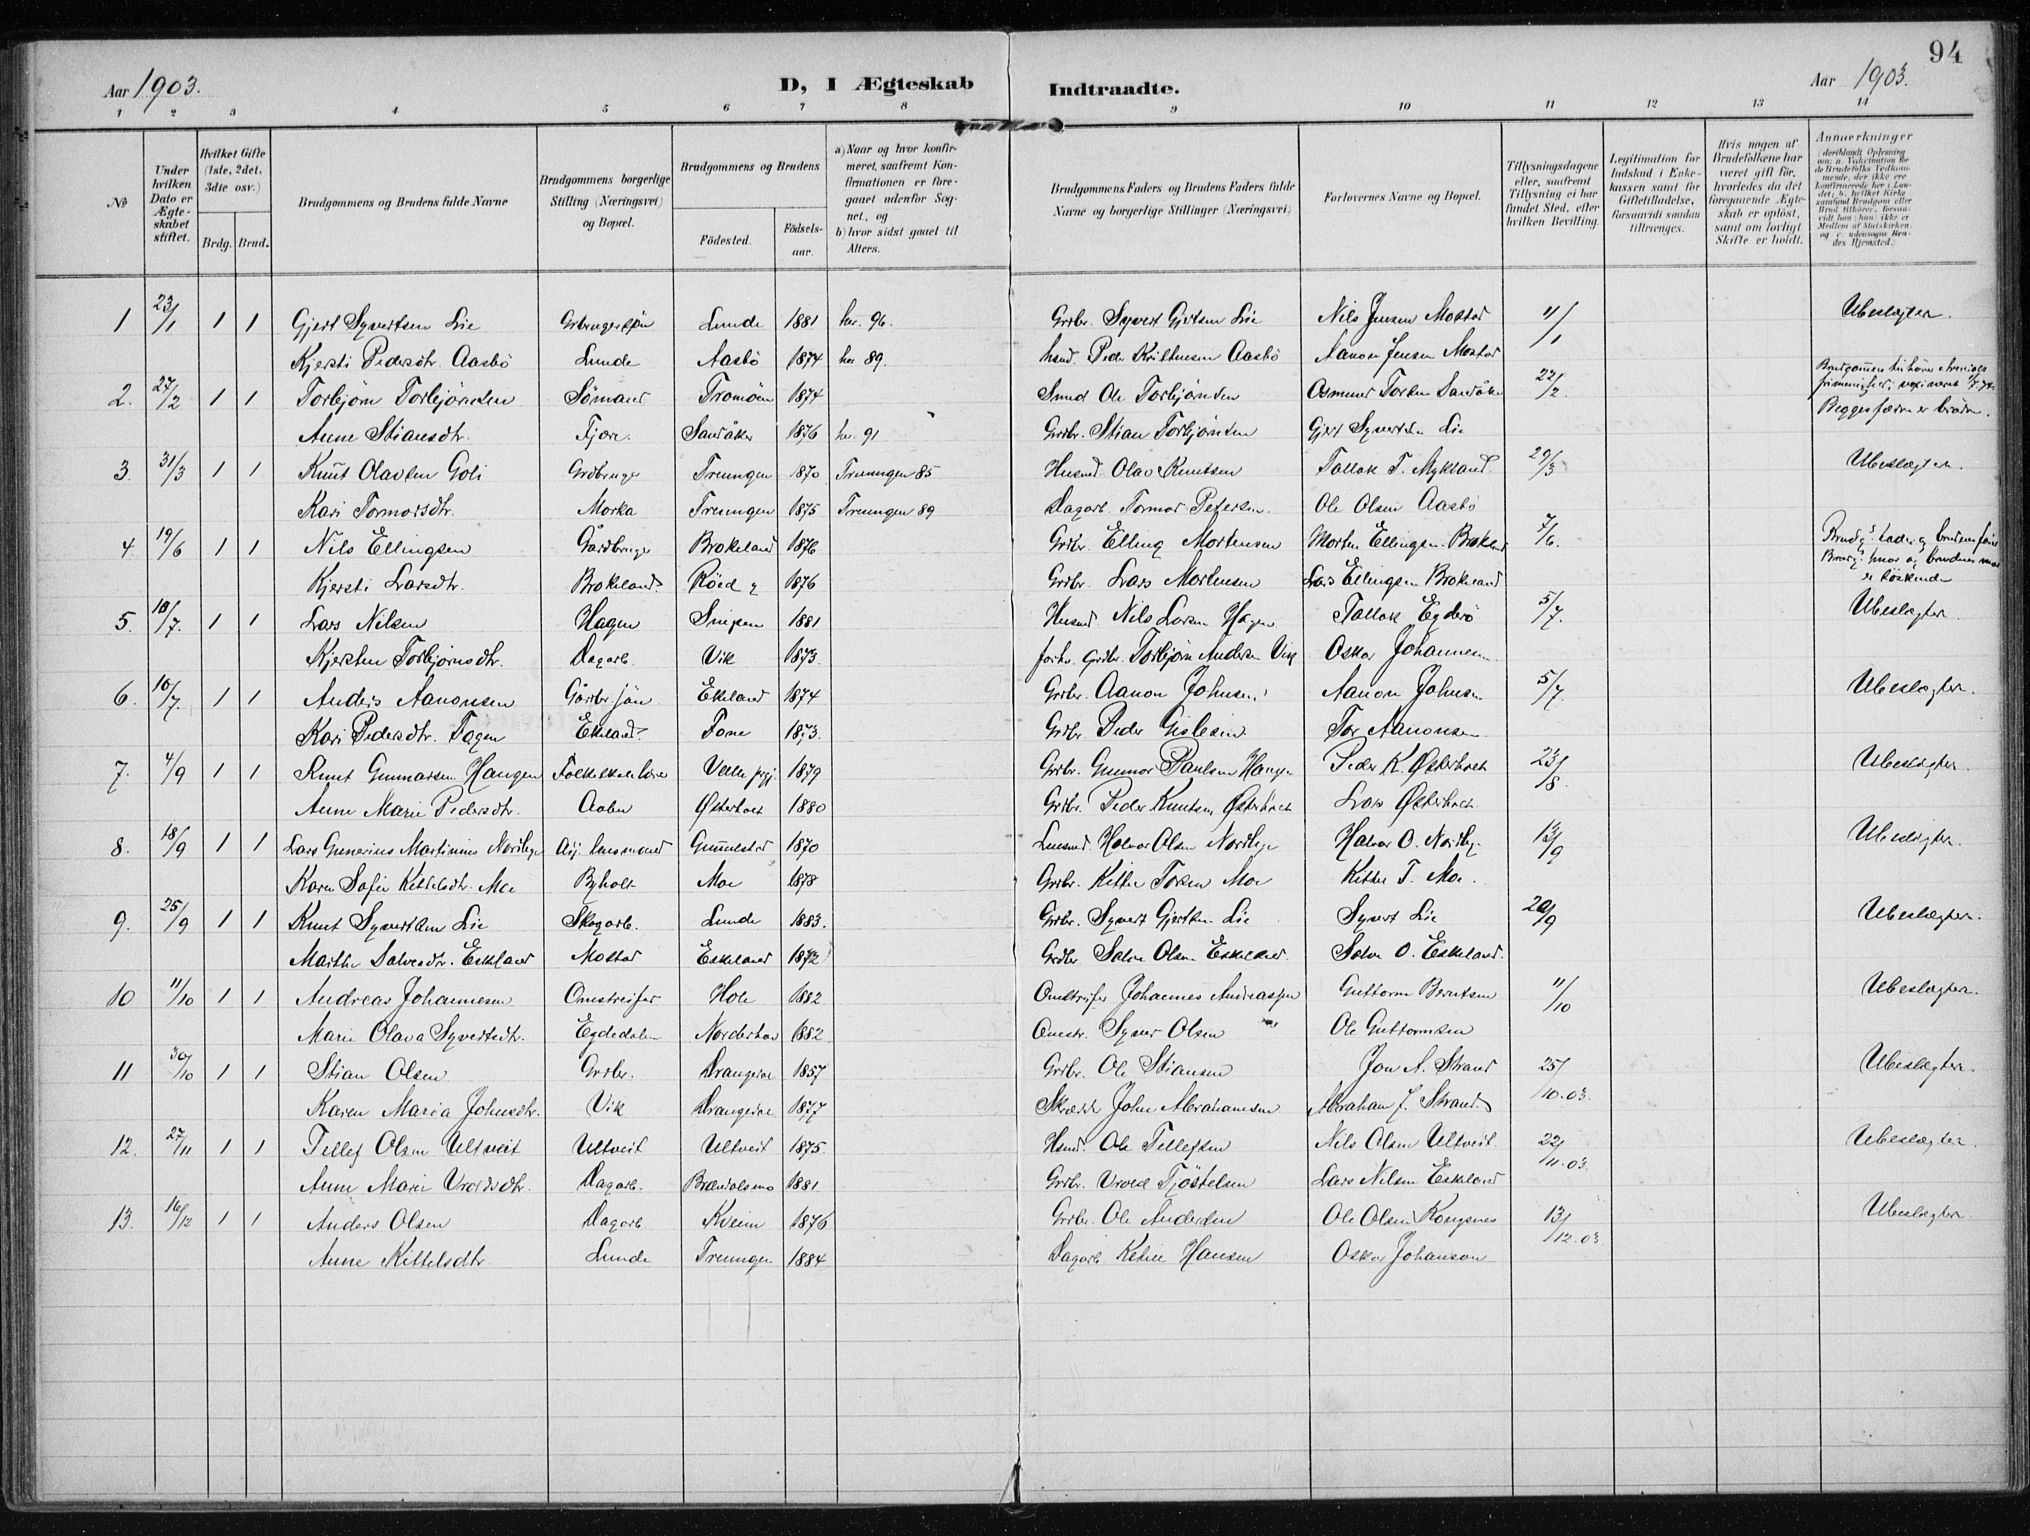 94
Aar 1903. D, I Ægteskab Indtraadte. Aar 1903.
1 2 3 4 5 6 7 8 9 10 11 12 13 14
No
Under hvilken Dato er Ægteskabet stiftet.
Hvilket Gifte (1ste, 2det, 3die osv.)
Brdg. Brud.
Brudgommens og Brudens fulde Navne
Brudgommens borgerlige Stilling (Næringsvei) og Bopæl.
Brudgommens og Brudens
Fødested. Fødselsaar.
a) Naar og hvor konfirmeret, saafremt Konfirmationen er foregaaet udenfor Sognet, og
b) hvor sidst gaaet til Alters.
Brudgommens Faders og Brudens Faders fulde Navne og borgerlige Stillinger (Næringsvei)
Forlovernes Navne og Bopæl.
Tillysningsdagene eller, saafremt Tillysning ei har fundet Sted, efter hvilken Bevilling.
Legitimation for Indskud i Enkekassen samt for Giftetilladelse, forsaavidt saadan tiltrænges.
Hvis nogen af Brudefolkene har været gift før, hvorledes da det foregaaende Ægteskab er opløst, samt om lovligt Skifte er holdt.
Anmærkninger
1 23/1 1 1 Gjert Syvertsen Lie Grbrugersøn Lunde 1881 her. 96. Grdbr. Syvert Gjertsen Lie Nils Jensen Mostad 11/1 Ubeslægter.
Kjersti Pedersdtr. Aasbö Lunde Aasbö 1874 her 89. Husmd. Peder Aasbö Aanon Jensen Mostad
2. 27/2 1 1 Torbjörn Torbjörnsen Sömand Tromöen 1874 Ole Torbjörnsen Torsen Sandåker 22/2 Begges fædre er brödre.
Anne Stiansdtr. Fjære. Sandåker 1876 her. 91 Grdbr. Stian Torbjörnsen Gjert Syvertsen Lie
3. 31/3 1 1 Knut Olavsen Goli Grdbruger Treungen 1870 Treungen 85 Husmd. Olav Knutsen Tallak T. Mykland 29/3 Ubeslægter.
Kari Tormorsdtr. Morka Treungen 1875 Treungen 89 Dagarb. Tormor Petersen. Ole Olsen Aasbö
4 19/6 1 1 Nils Ellingsen Gårdbruger Brokeland 1876 Grdbr. Elling Mortensen Morten Ellingsen Brokeland 7/6. Brudg.s fader og brudens far
Kjersti Larsdtr. Brokeland Röed 1876 Grdbr. Lars Mortensen Lars Ellingsen Brokeland Brudg.s mor og brudens mor er söskende
5. 10/7. 1 1 Lars Nilsen Hagen 1881 Husmd Nils Larsen Hagen Tallak Egdö 5/7. Ubeslægter.
Kjersten Torbjörnsdtr. Dagarb. Vik 1873. Grdbr. Torbjörn Andersen Vik Oskar Johannesen
6. 10/7. 1 1 Anders Aanonsen Gårdbr. sön Eskeland 1874 Grdbr. Aanon Johnsen Aanon Johnsen 5/7. Ubeslægter.
Kari Pedersdtr. Fagen Eskeland Fone 1873. Grdbr. Peder Gislesen Tor Aanonsen
7. 4/9 1 1 Knut Gunnarsen Haugen Folkeskolelærer 1879 Grdbr. Gunnar Paulsen Haugen Peder K. Østerholt 23/8 Ubeslægter.
Anne Marie Pedersdtr. Østerholt 1880 Grdbr. Peder Knutsen Østerholt Lars Østerholt
8. 18/9 1 1 Lars Gunerius Martinius Nordbye lensmand 1870 Lensmd. Halvor Olsen Nordbye Halvor O. Nordby 13/9 Ubeslægter.
Karen Sofie Kittelsdtr. Moe Byholt Moe 1878 Grdbr. Kittel Torsen Moe Kittel T. Moe.
9. 25/9 1 1 Knut Syvertsen Lie Skogarb. Lunde 1883. Grdbr. Syvert Gjertsen Lie Syvert Lie 20/9 Ubeslægter.
Marthe Salvesdtr. Eskeland Mostad Eskeland 1872 Grdbr Salve Olsen Eskeland Salve O. Eskeland.
10 11/10 1 1 Andreas Johannesen Omstreifer Hole 1882 Omstreifer Johannes Andreassen Guttorm Berntsen 11/10 Ubeslægter.
Marie Olava Syvertsdtr. Egdedalen Norderhov 1882. Omstr. Syver Olsen Ole Guttormsen
11 30/10 1 1 Stian Olsen Grdbr. Drangedal 1857 Grdbr. Ole Stiansen Jon A. Strand 25/10.03. Ubeslægter.
Karen Maria Johnsdtr. Vik Drangedal 1877 Skrædder John Abrahamsen Abraham J. Strand
12. 27/11 1 1 Tellef Olsen Ultveit Ultveit Ultveit 1875. Husmd. Ole Tellefsen Nils Olsen Ultveit. 22/11.03. Ubeslægter.
Anne Marie Vroldsdtr. Dagarb. Brændalsmo 1881 Grdbr. Vrold Tjöstelsen Lars Nilsen Eskeland
13. 16/12 1 1 Anders Olsen Dagarb. Kveim 1876 Grdbr. Ole Andersen Ole Olsen Kongsnes 13/12.03. Ubeslægter.
Anne Kittelsdtr. Lunde Treungen 1884 Dagarb Hansen Oskar Johanson